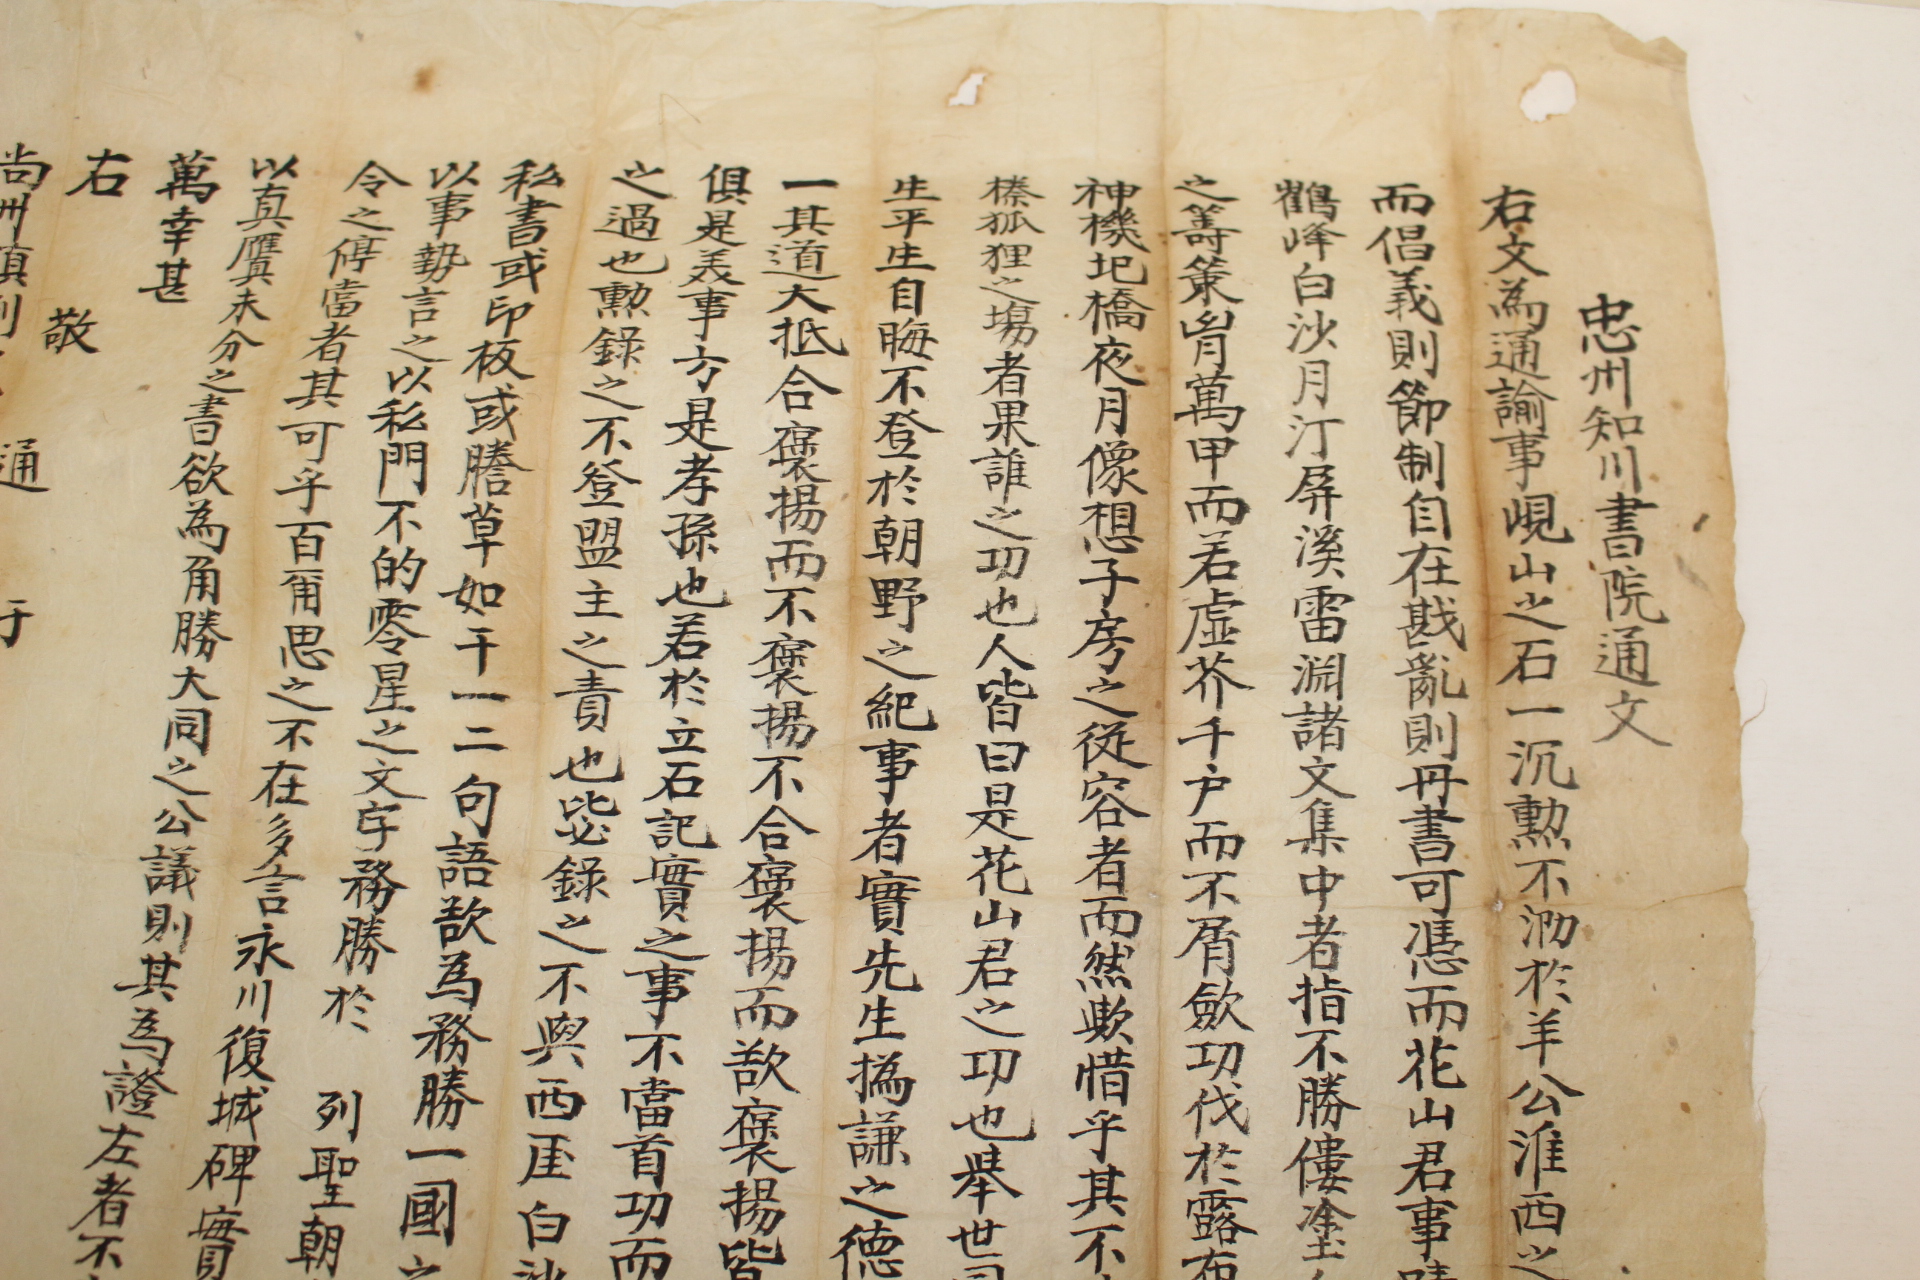 忠州知川書院通文
右文為通諭事峴山之石一沉勲不泐於羊公淮西之
而倡義則節制自在戡亂則丹書可憑而花山君事蹟
鶴峰白沙月汀屏溪雷淵諸文集中者指不勝僂塗
之籌策胷萬甲而若虛芥千户而不屑歛功伐於露布
神機圯橋夜月像想子房之從容者而然歟惜乎其不
榛狐狸之塲者果誰之功也人皆曰是花山君之功也舉世
生平生自晦不登於朝野之紀事者實先生撝謙之德
一其道大抵合褒揚而不褒揚不合褒揚而歆褒揚皆
俱是美事方是孝孫也若於立石記實之事不當首功而
之過也勲錄之不登盟主之責也毖錄之不與西厓白沙
私書或印板或謄草如干一二句語歆為務勝一國之
以事勢言之以私門不的零星之文字務勝於 列聖朝
令之停當者其可乎百爾思之不在多言永川復城碑實
以真贋未分之書欲為角勝大同之公議則其為證左者不
萬幸甚
右 敬
尚州鎮 通 于